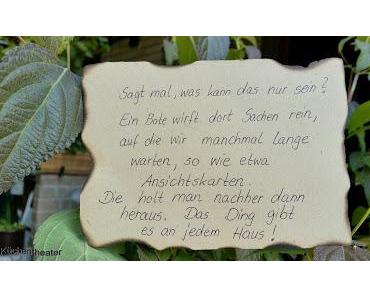 Sagt mal, was kann das nur sein?
Ein Bote wirft dort Sachen rein,
auf die wir manchmal lange
warten, so wie etwa
Ansichtskarten.
Die holt man nachher dann
heraus. Das Ding gibt
es an jedem Haus!
Küchentheater